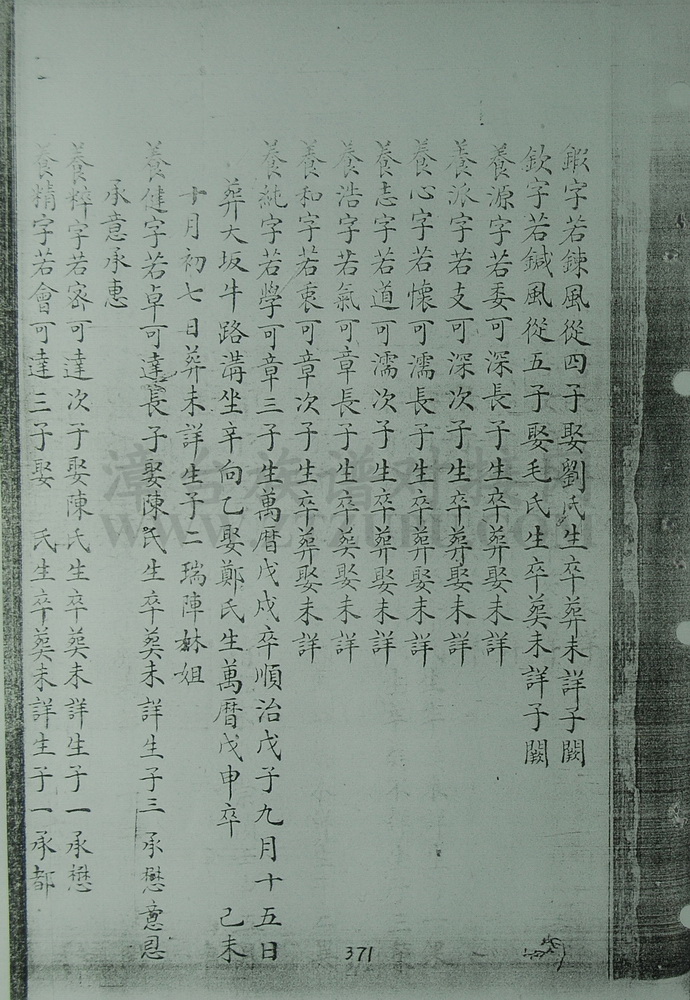 鍜字若鍊風從四子娶劉氏生卒葬未詳子闕
欽字若鍼風從五子娶毛氏生卒葬未詳子闕
養源字若委可深長子生卒葬娶未詳
養派字若支可深次子生卒葬娶未詳
養心字若懷可濡長子生卒葬娶未詳
養志字若道可濡次子生卒葬娶未詳
養浩字若氣可章長子生卒葬娶未詳
養和字若衷可章次子生卒葬娶未詳
養純字若學可章三子生萬曆戊戌卒順治戊子九月十五日
葬大坂牛路溝坐辛向乙娶鄭氏生萬曆戊申卒 己未
十月初七日葬未詳生子二瑞陣妹姐
養健字若卓可達長子娶陳氏生卒葬未詳生子三承懋意恩
承意承惠
養粹字若密可達次子娶陳氏生卒葬未詳生子一承懋
養精字若會可達三子娶 氏生卒葬未詳生子一承都
371